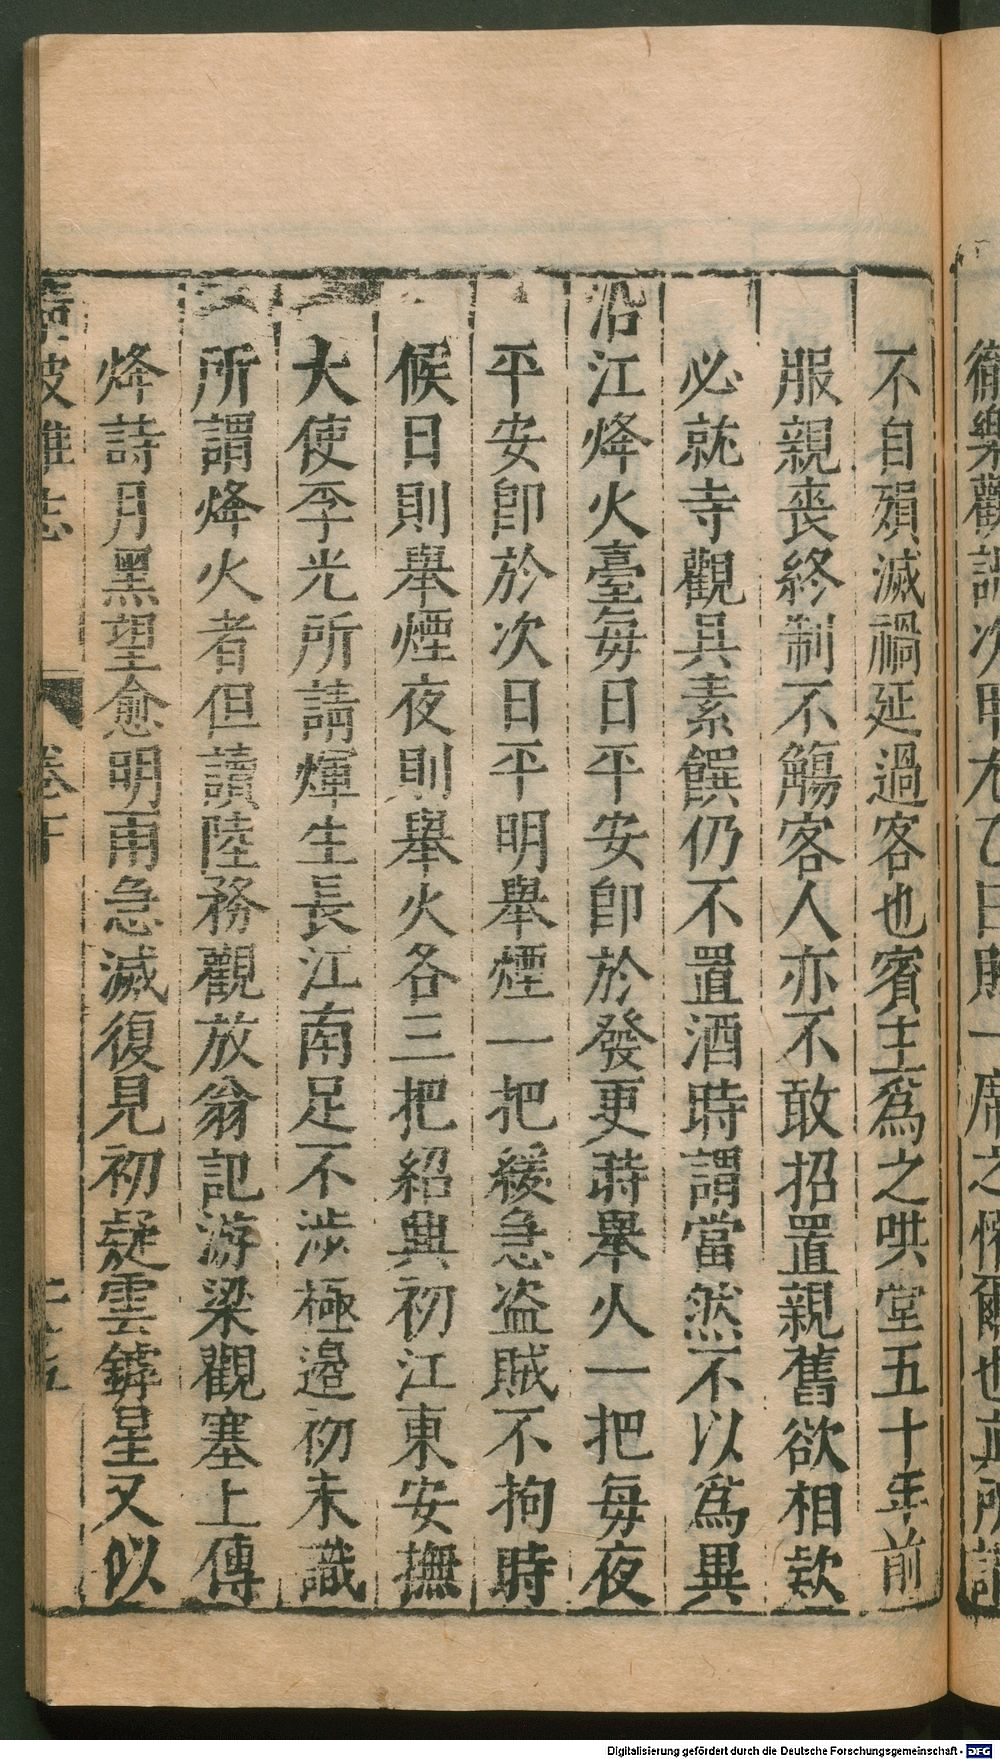 不自殞滅禍延過客也賓主爲之哄堂五十年前
服親喪終制不觴客人亦不敢招置親舊欲相欵
必就寺觀具素饌仍不置酒時謂當然不以爲異
沿江烽火臺每日平安即於發更時舉火一把每夜
平安即於次日平明舉煙一把緩急盗賊不拘時
候日則舉煙夜則舉火各三把紹興初江東安撫
大使李光所請煇生長江南足不涉極邉初未識
所謂烽火者但讀陸務觀放翁記游梁觀塞上傳
烽詩月黑望愈明雨急滅復見初疑雲罅星又似
波雜志
卷下
Digitalisierung gefördert durch die Deutsche Forschungsgemeinschaft - DFG